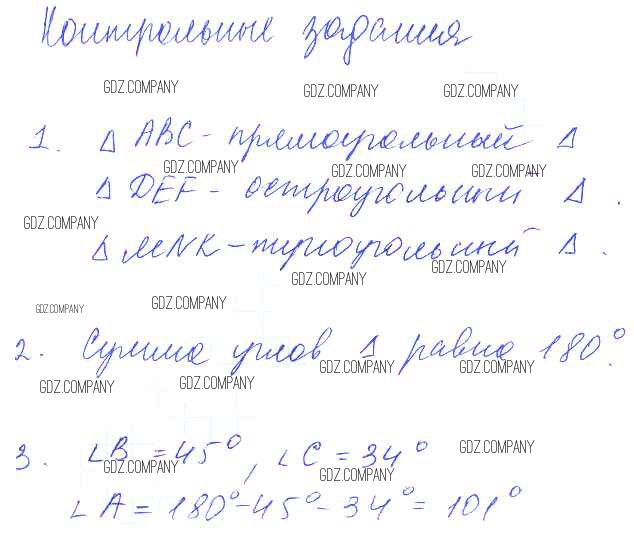 Контрольные задания
GDZ.COMPANY GDZ.COMPANY GDZ.COMPANY
1. Δ ABC - прямоугольный Δ
GDZ.COMPANY GDZ.COMPANY GDZ.COMPANY
Δ DEF - остроугольный Δ.
GDZ.COMPANY
Δ MNK - тупоугольный Δ.
GDZ.COMPANY GDZ.COMPANY
GDZ.COMPANY GDZ.COMPANY
2. Сумма углов Δ равна 180°.
GDZ.COMPANY GDZ.COMPANY
GDZ.COMPANY GDZ.COMPANY
3. ∠B = 45°, ∠C = 34°
GDZ.COMPANY GDZ.COMPANY GDZ.COMPANY
∠A = 180° - 45° - 34° = 101°